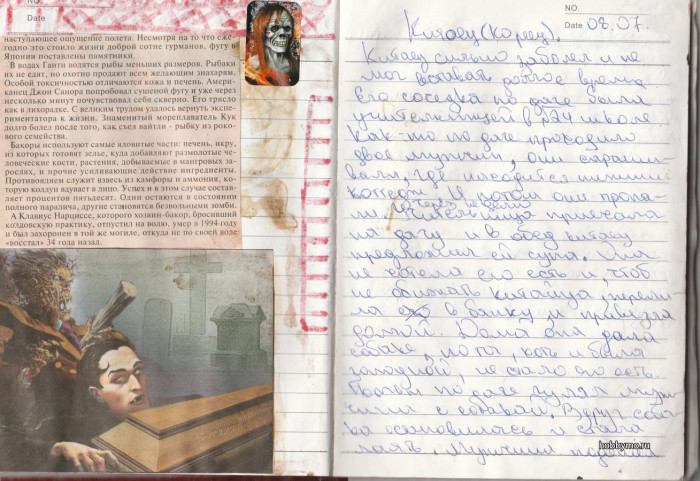 NO.
Date
наступающее ощущение полета. Несмотря на то что еже-
годно это стоило жизни доброй сотне гурманов, фугу в
Японии поставлены памятники.
В водах Гаити водятся рыбы меньших размеров. Рыбаки
их не едят, но охотно продают всем желающим знахарям.
Особой токсичностью отличаются кожа и печень. Амери-
канец Джон Санора попробовал сушеной фугу и уже через
несколько минут почувствовал себя скверно. Его трясло
как в лихорадке. С великим трудом удалось вернуть экспе-
риментатора к жизни. Знаменитый мореплаватель Кук
долго болел после того, как съел вайтли - рыбку из роко-
вого семейства.
Бакоры используют самые ядовитые части: печень, икру,
из которых готовят зелье, куда добавляют размолотые че-
ловеческие кости, растения, добываемые в мангровых за-
рослях, и прочие усиливающие действие ингредиенты.
Противоядием служит взвесь из камфоры и аммония, ко-
торую колдун вдувает в лицо. Успех и в этом случае состав-
ляет процентов пятьдесят. Одни остаются в состоянии
полного паралича, другие становятся безвольными зомби.
А Клавиус Нарцисс, которого хозяин-бакор, бросивший
колдовскую практику, отпустил на волю, умер в 1994 году
и был захоронен в той же могиле, откуда не по своей воле
«восстал» 34 года назад.
NO.
Date 08.07.
Китаец (Кореец).
Китаец сильно заболел и не
мог вставать долгое время.
Его соседка по даче была
учительницей в 124 школе
Как-то по даче проходило
двое мужчин, они спраши-
вали, где находится питание
И потом они пропа-
ли. Через неделю учительница приехала
на дачу и в обед китаец
предложил ей супа. Она
не хотела его есть и, чтоб
не обижать китайца, перели-
ла его в банку и привезла
домой. Дома она дала
собаке, но та, хоть и была
голодной, не стала его есть.
Потом по даче гулял муж-
чина с собакой. Вдруг соба-
ка остановилась и стала
лаять. Мужчина подошёл
hobbymo.ru